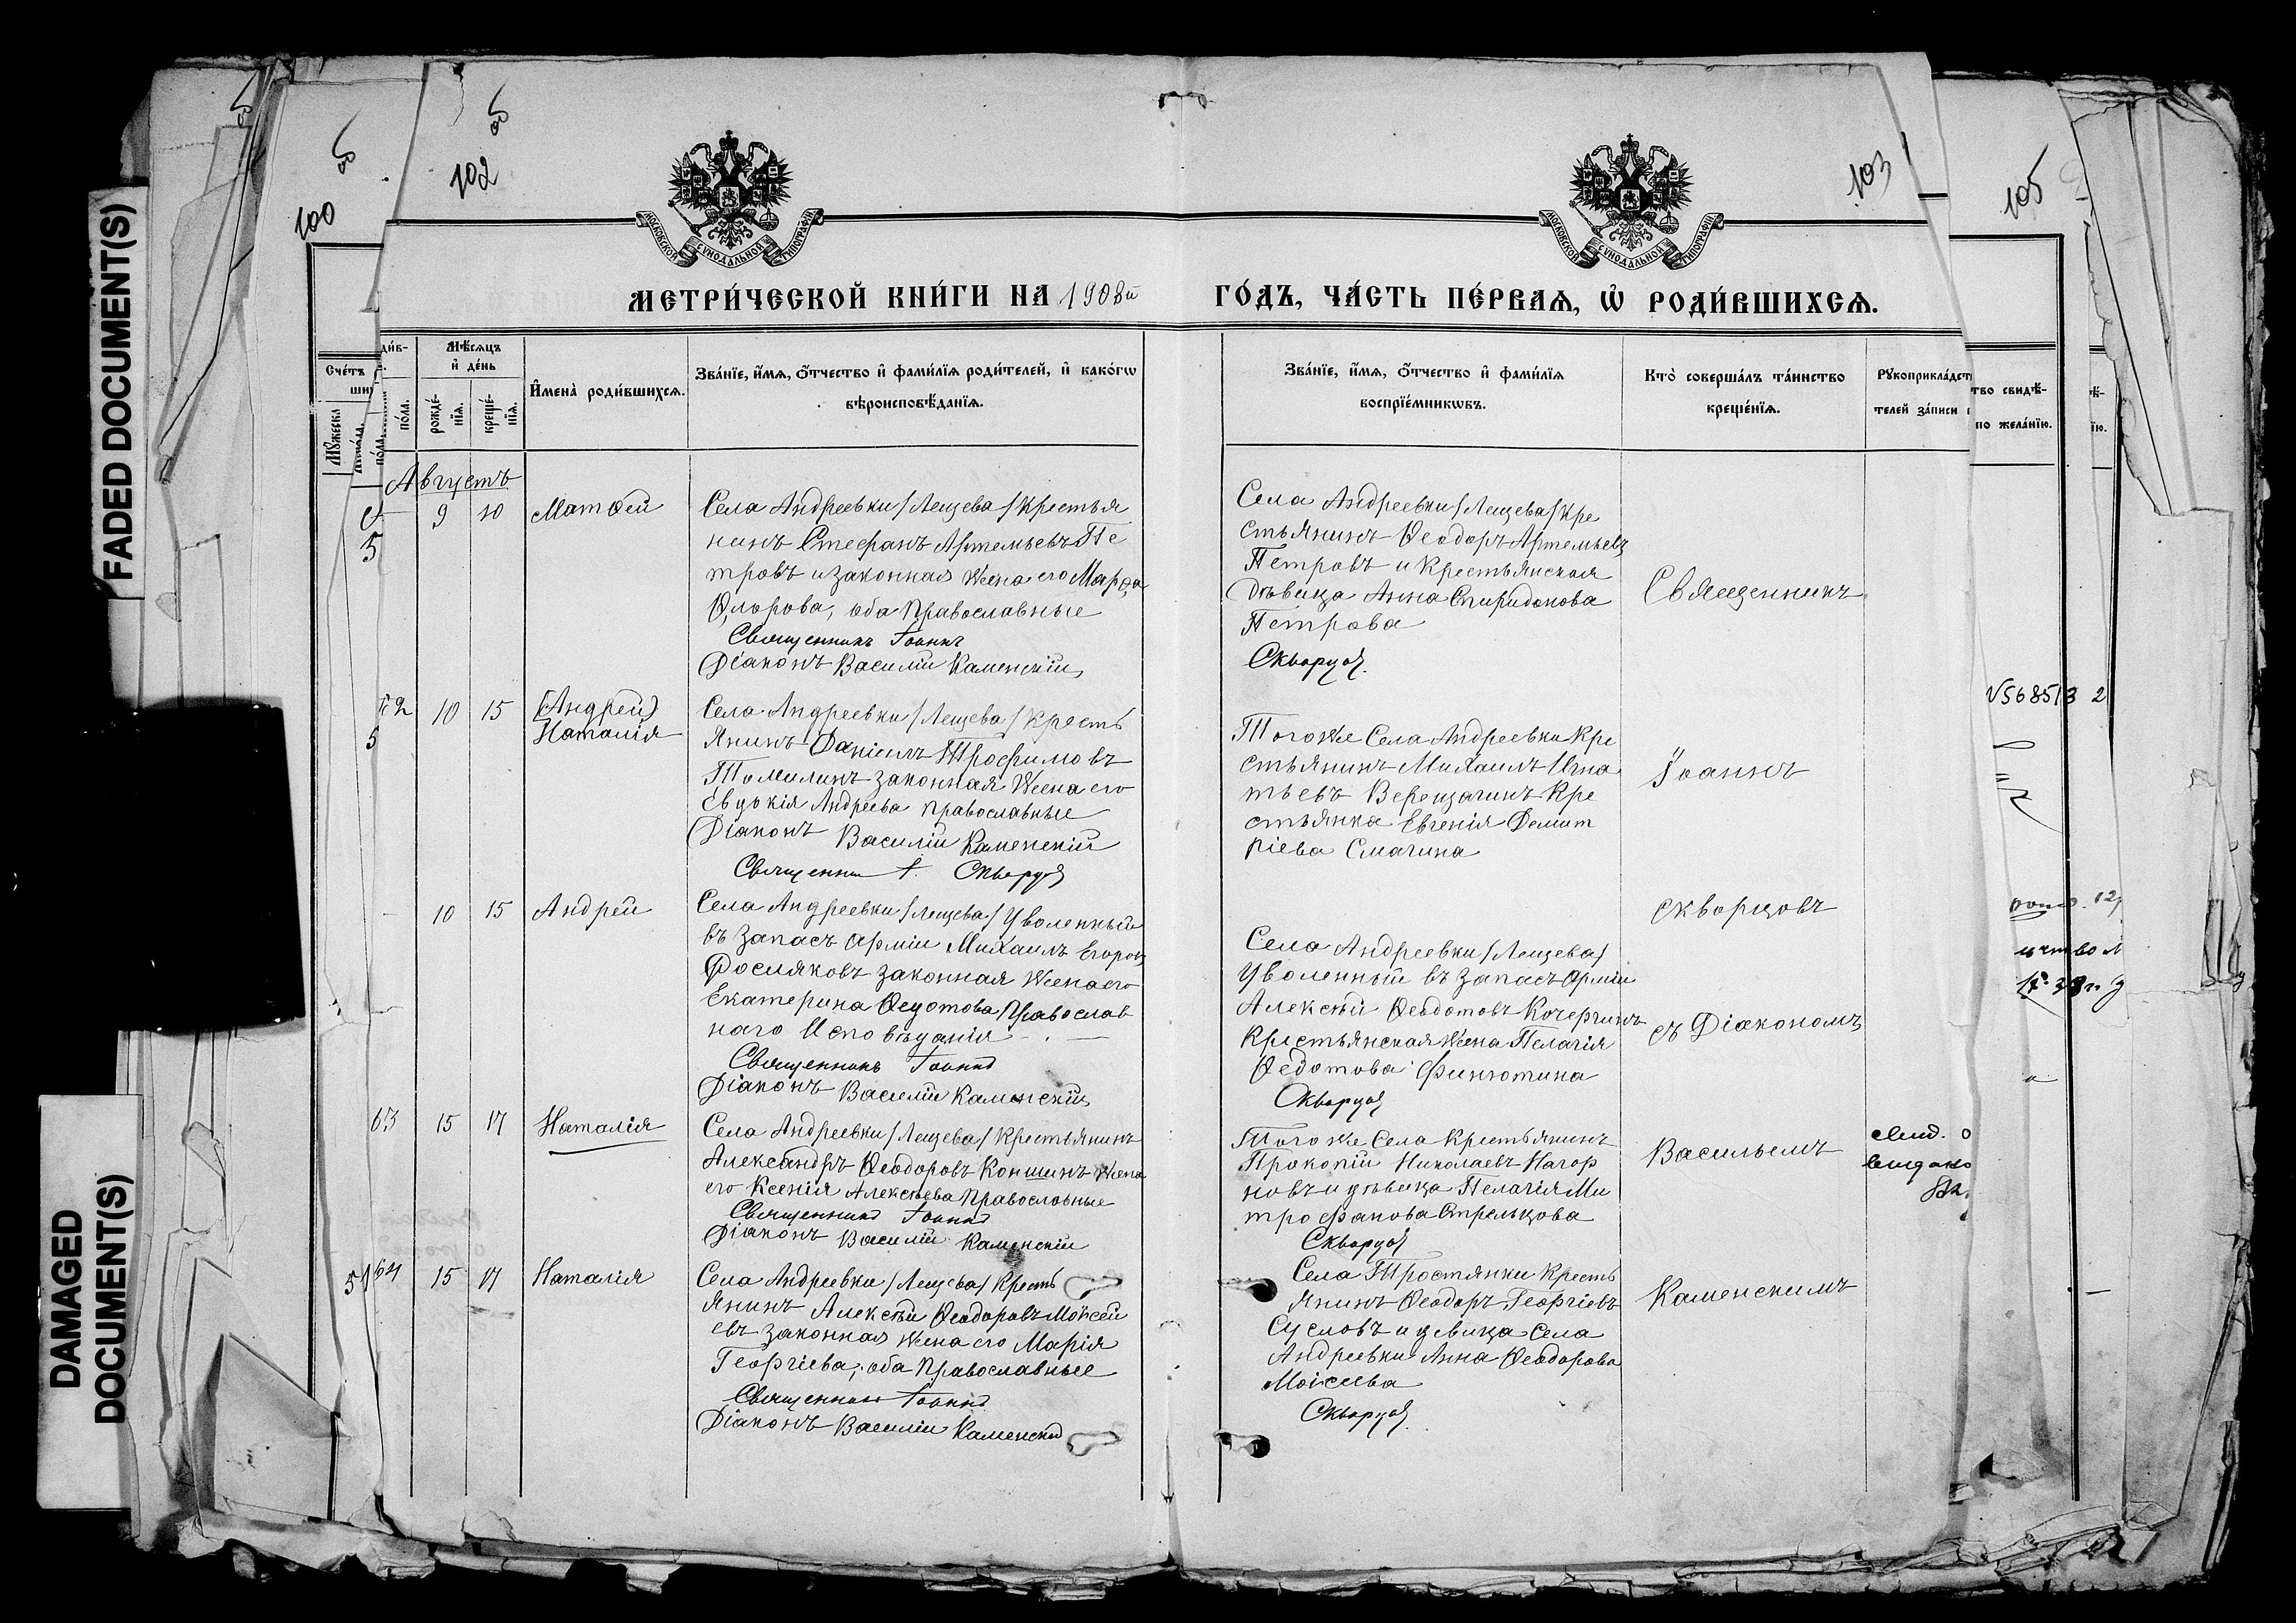 FADED DOCUMENT(S)
DAMAGED
DOCUMENT(S)
100
об
102
об
103
105
МОСКОВСКОЙ СѴНОДАЛЬНОЙ ТИПОГРАФІИ
МОСКОВСКОЙ СѴНОДАЛЬНОЙ ТИПОГРАФІИ
МЕТРИ́ЧЕСКОЙ КНИ́ГИ НА 1908й ГО́ДЪ, ЧА́СТЬ ПЕ́РВАѦ, Ѡ҆ РОДИ́ВШИХСѦ.
Сче́тъ
Мѣ́сѧцъ
и҆ де́нь
рожде́-
нїѧ.
креще́-
нїѧ.
И҆мена̀ роди́вшихсѧ.
Зва́нїе, и҆́мѧ, ѻ҆́тчество и҆ фами́лїѧ роди́телей, и҆ како́гѡ
вѣроисповѣ́данїѧ.
Зва́нїе, и҆́мѧ, ѻ҆́тчество и҆ фами́лїѧ
воспрїе́мникѡвъ.
Кто̀ соверша́лъ та́инство
креще́нїѧ.
Рꙋкоприкла́дст
тво свидѣ́-
телей за́писи
по жела́нїю.
Августъ
9 10 Матѳей
Села Андреевки /Лещева/ крестья
нинъ Стефанъ Артемьевъ Пе
тровъ и законная жена его Марѳа
Флорова, оба православные
Священникъ Іоаннъ
Діаконъ Василій Каменскій
Села Андреевки /Лещева/ кре
стьянинъ Ѳеодоръ Артемьевъ
Петровъ и крестьянская
дѣвица Анна Спиридонова
Петрова
Скворцовъ
Священникъ
62 10 15 (Андрей)
Наталія
Села Андреевки /Лещева/ кресть
янинъ Даніилъ Трофимовъ
Томилинъ законная жена его
Евдокія Андреева православные
Діаконъ Василій Каменскій
Священни І. Скворцовъ
Того же Села Андреевки кре
стьянинъ Михаилъ Игна
тьевъ Верещагинъ кре
стьянка Евгенія Демит
ріева Смагина
Іоаннъ
10 15 Андрей
Села Андреевки /Лещева/ уволенный
въ запасъ арміи Михаилъ Егоровъ
законная жена его
Екатерина Ѳедотова Православ
наго Исповѣданія
Священникъ Іоаннъ
Діаконъ Василій Каменскій
Скворцовъ
Села Андреевки /Лещева/
уволенный въ запасъ арміи
Алексѣй Ѳеодотовъ Кочергинъ
крестьянская жена Пелагія
Ѳедотова Финютина
Скворцовъ
съ Діакономъ
63 15 17 Наталія
Села Андреевки /Лещева/ крестьянинъ
Александръ Ѳеодоровъ Коншинъ жена
его Ксенія Алексѣева православные
Священникъ Іоаннъ
Діаконъ Василій Каменскій
Того же Села крестьянинъ
Прокопій Николаевъ Нагор
новъ и дѣвица Пелагія Ми
трофанова Стрельцова
Скворцовъ
Васильемъ
64 15 17 Наталія
Села Андреевки /Лещева/ кресть
янинъ Алексѣй Ѳеодоровъ Моисей
евъ законная жена его Марія
Георгіева, оба православные
Священникъ Іоаннъ
Діаконъ Василій Каменскій
Села Тростянки кресть
янинъ Ѳеодоръ Георгіевъ
Сусловъ и девица Села
Андреевки Анна Ѳеодорова
Моисеева
Скворцовъ
Каменскимъ